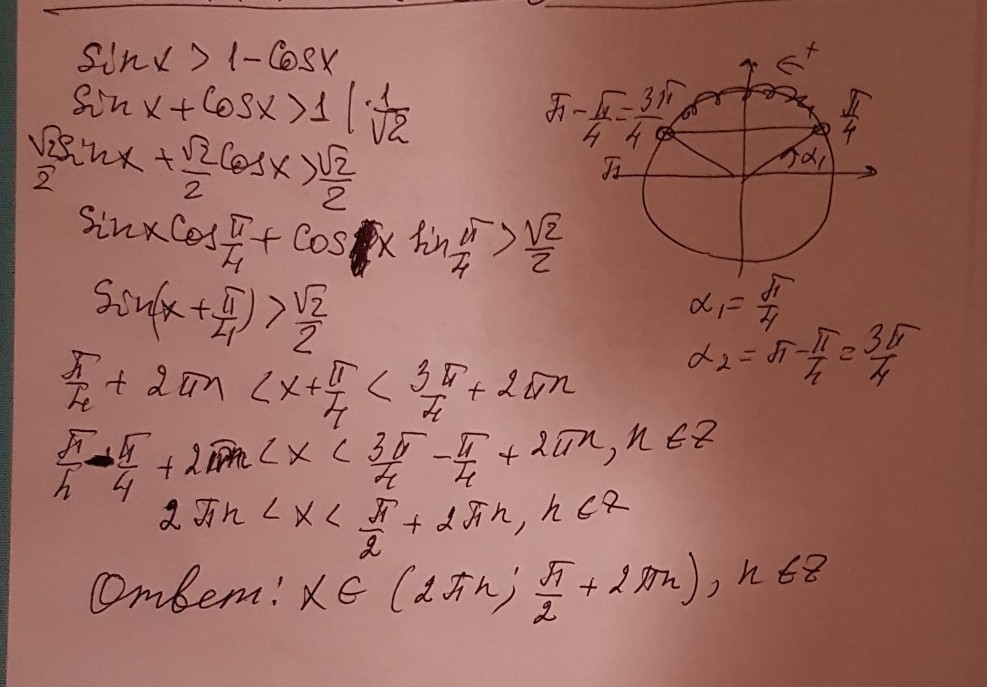 sin x > 1 - cos x
sin x + cos x > 1 | · 1/√2
√2/2 sin x + √2/2 cos x > √2/2
sin x cos π/4 + cos x sin π/4 > √2/2
sin(x + π/4) > √2/2
π/4 + 2πn < x + π/4 < 3π/4 + 2πn
π/4 - π/4 + 2πn < x < 3π/4 - π/4 + 2πn, n ∈ Z
2πn < x < π/2 + 2πn, n ∈ Z
Ответ: x ∈ (2πn; π/2 + 2πn), n ∈ Z
+
π - π/4 = 3π/4
π/4
π
α₁
α₁ = π/4
α₂ = π - π/4 = 3π/4